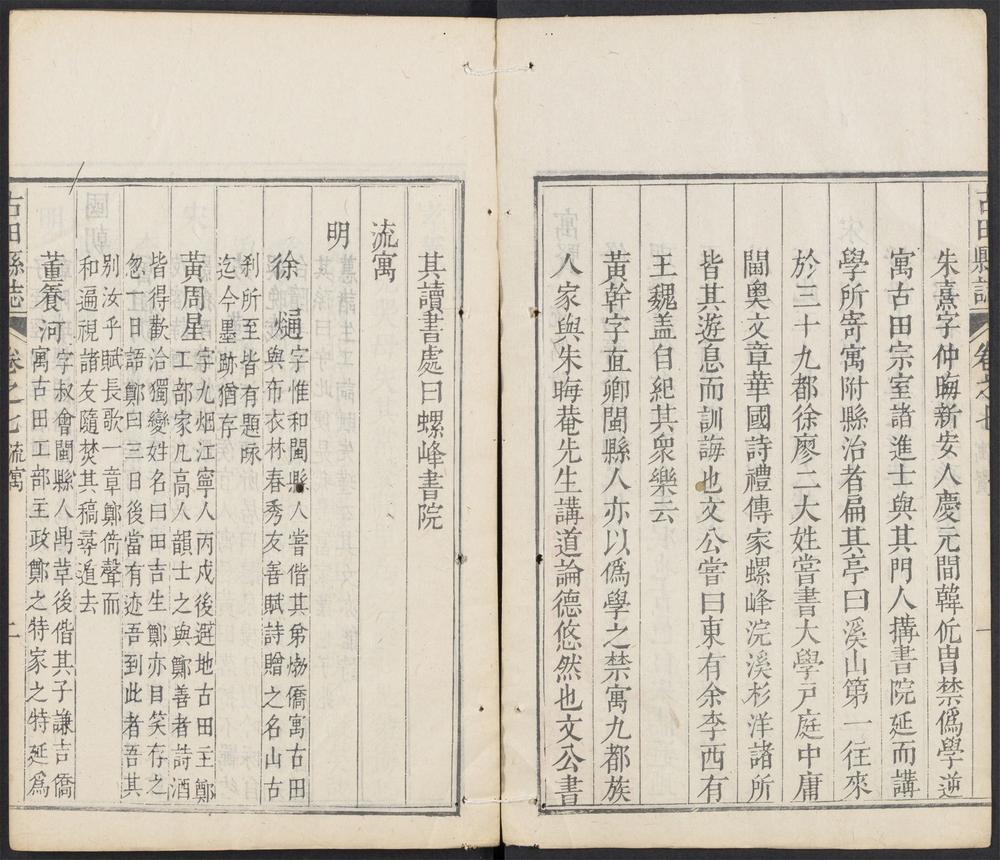 古田縣誌 卷之七 一
朱熹字仲晦新安人慶元間韓侂冑禁僞學逆
寓古田宗室諸進士與其門人搆書院延而講
學所寄寓附縣治者扁其亭曰溪山第一往來
於三十九都徐廖二大姓嘗書大學戸庭中庸
閫奥文章華國詩禮傳家螺峰浣溪杉洋諸所
皆其遊息而訓誨也文公嘗曰東有余李西有
王魏盖自紀其衆樂云
黄幹字直卿閩縣人亦以僞學之禁寓九都族
人家與朱晦菴先生講道論德悠然也文公書
其讀書處曰螺峰書院
流寓
明
徐𤊹字惟和閩縣人嘗偕其弟㶿僑寓古田
與布衣林春秀友善賦詩贈之名山古
刹所至皆有題咏
迄今墨跡猶存
黄周星字九烟江寧人丙戍後避地古田主鄭
工部家凡高人韻士之與鄭善者詩酒
皆得歡洽獨變姓名曰田吉生鄭亦目笑存之
忽一日語鄭曰三日後當有迹吾到此者吾其
别汝乎賦長歌一章鄭倚聲而
和遍視諸友隨焚其稿尋遁去
董養河字叔會閩縣人鼎革後偕其子謙吉僑
寓古田工部主政鄭之特家之特延爲
古田縣誌 卷之七 流寓 二